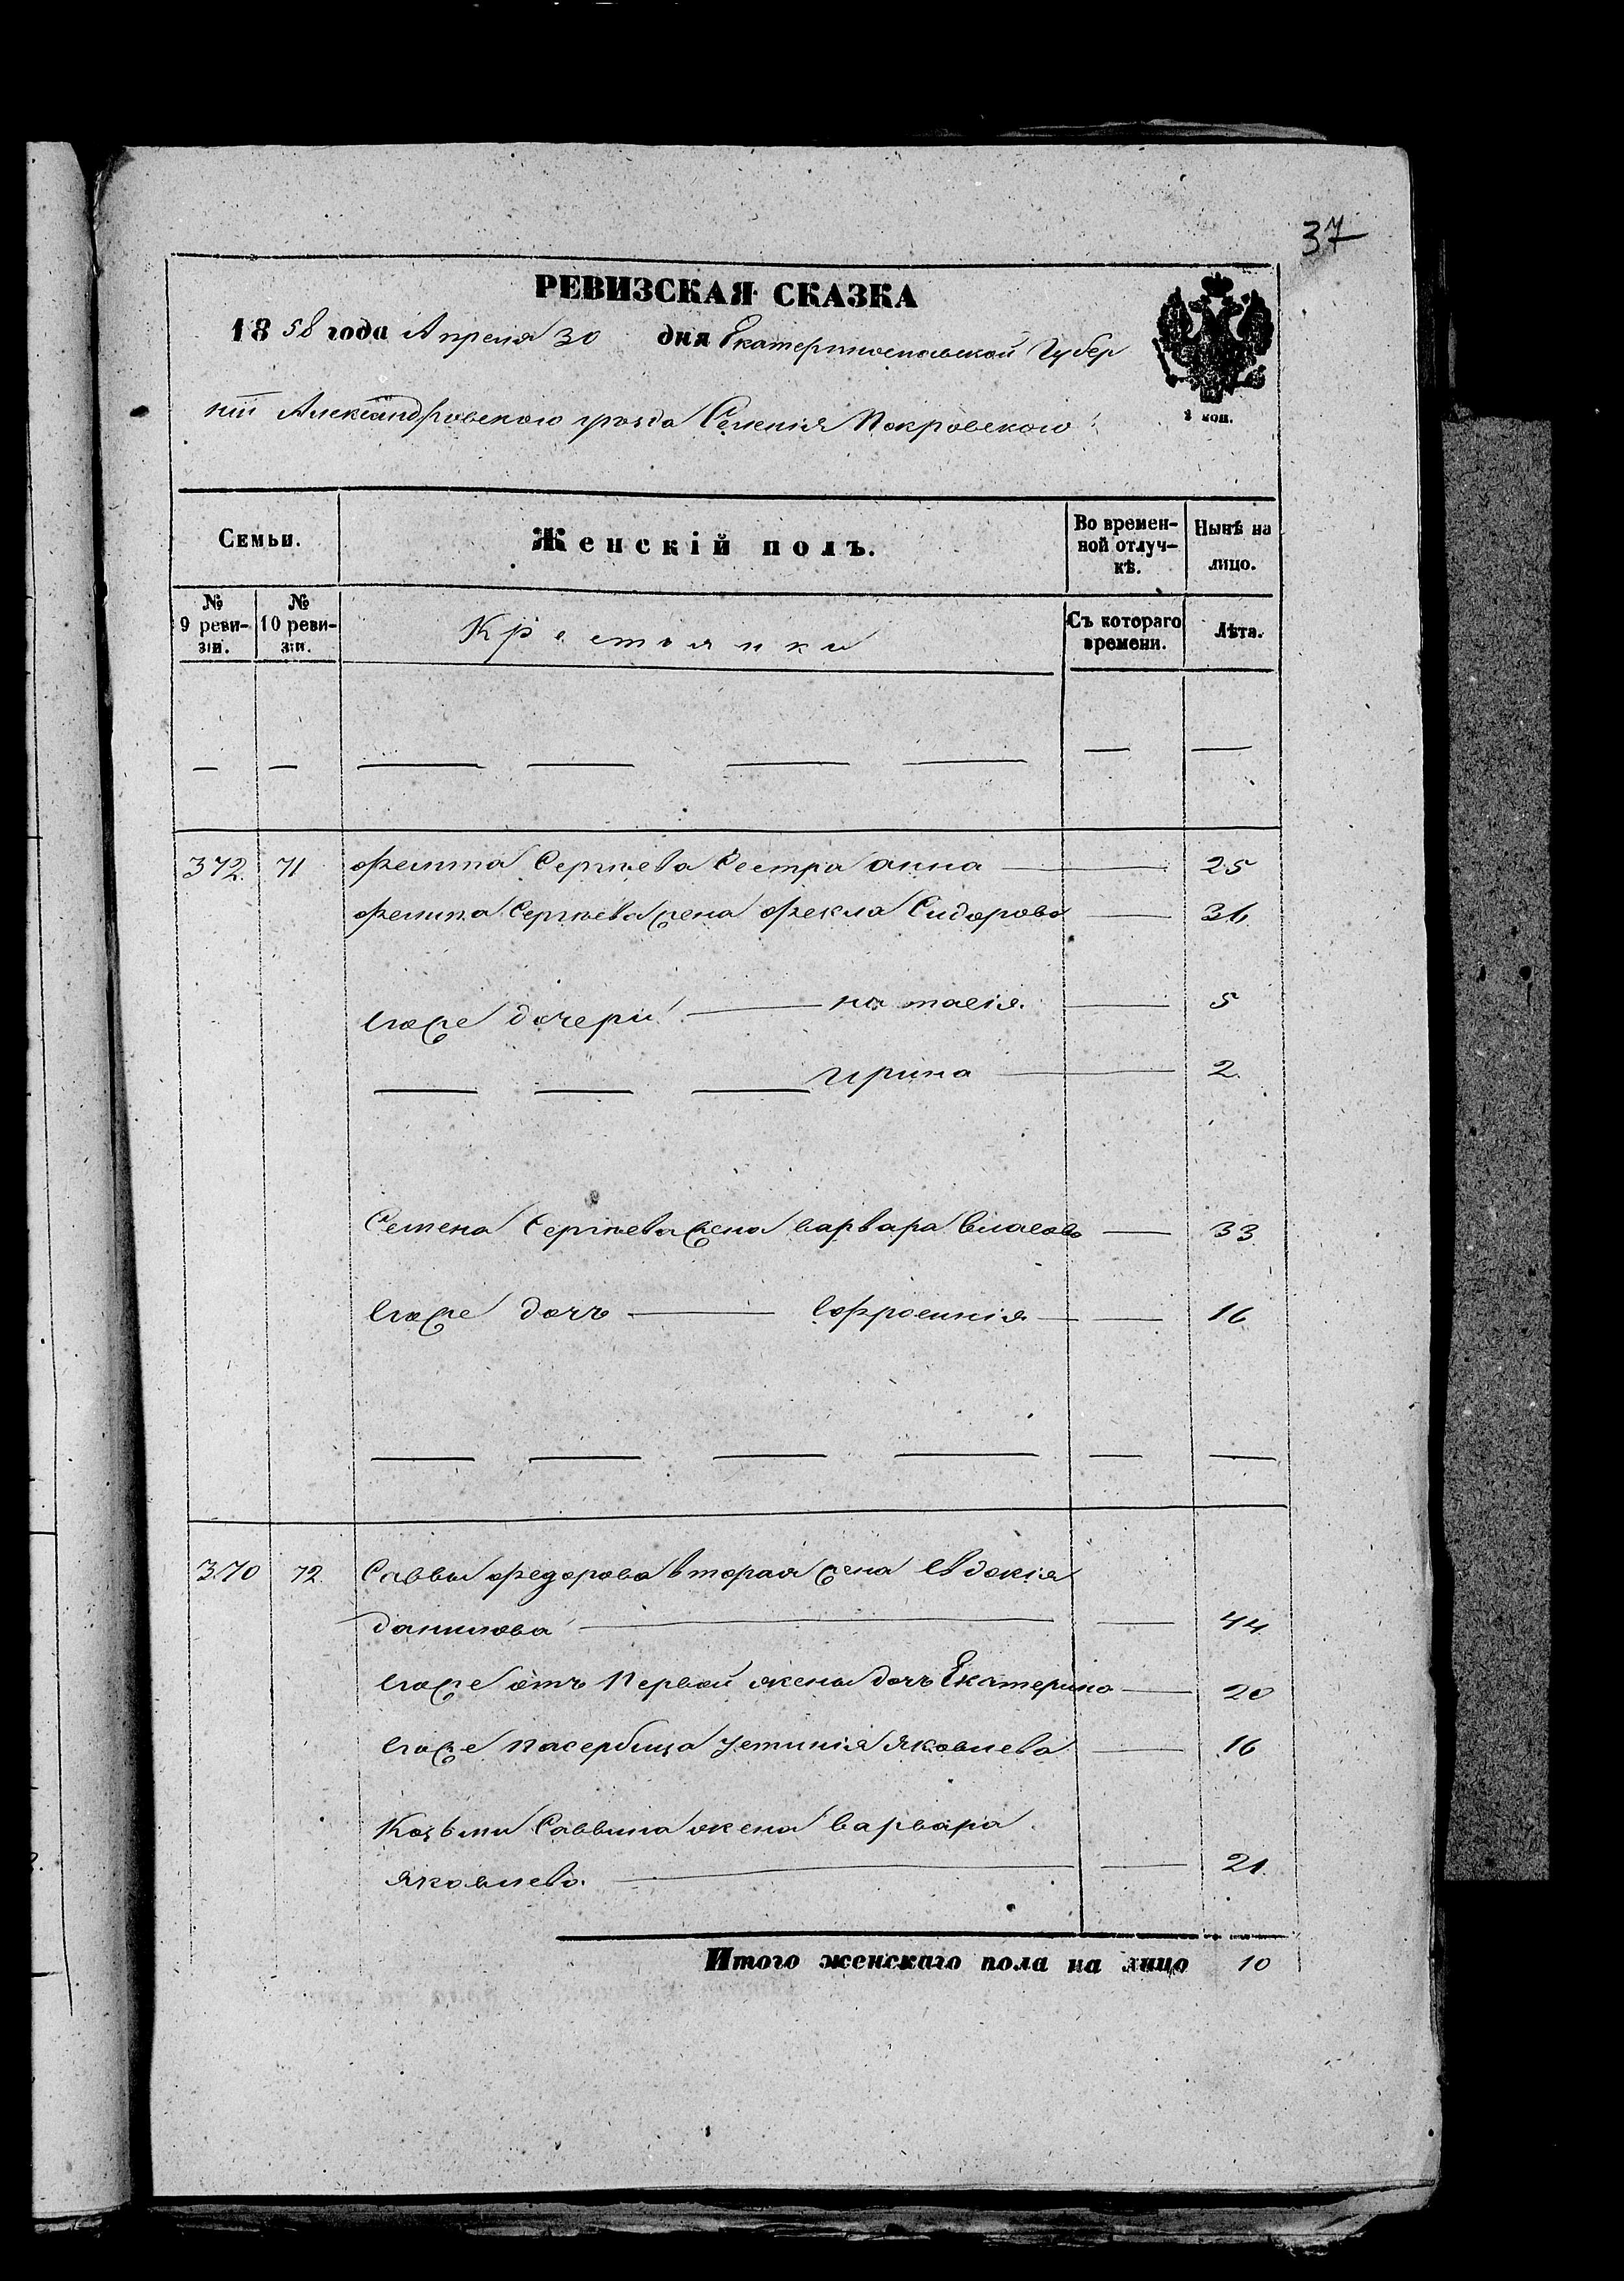 37
РЕВИЗСКАЯ СКАЗКА
1858 года Апреля 30 дня Екатеринославской Губер
ніи Александровского уѣзда Селенія Покровского
3 коп.
Семьи. Женскій полъ. Во времен-ной отлуч-кѣ. Нынѣ на лицо.
№ 9 реви-зіи. № 10 реви-зіи. Крестьянки Съ котораго времени. Лѣта.
372. 71 Филипа Сергѣева Сестра анна 25
Филипа Сергѣева жена Фекла Сидорова 36
Егоже дочери Настасія 5
Ирина 2.
Семена Сергѣева жена варвара власова 33
Егоже дочь Ефросинія 16
370 72. Саввы Федорова вторая жена Евдокія
данилова 44
Егоже отъ Первой жены дочь Екатерина 20
Егоже пасербица Устинія Яковлева 16
Козьми Саввина жена варвара
Яковлева. 21.
Итого женскаго пола на лицо 10